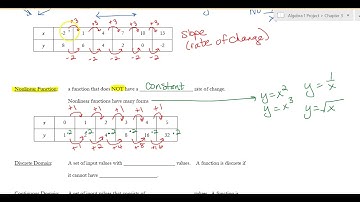 Algebra I Project > Chapter 3
+3 +3 +3 +3 +3
x -2 1 4 7 10 13
y 8 6 4 2 0 -2
-2 -2 -2 -2 -2
slope
(rate of change)
Nonlinear Function: a function that does NOT have a constant rate of change.
Nonlinear functions have many forms.
y=x²
y=x³
y=1/x
y=√x
+1 +1 +1 +1 +1
x 0 1 2 3 4 5
y 1 2 4 8 16 32
·2 ·2 ·2 ·2 ·2
+1 +2 +4 +8 +16
Discrete Domain: A set of input values with values. A function is discrete if
it cannot have
Continuous Domain: A set of input values that consists of values. A function is